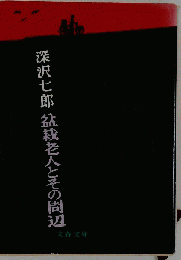 深沢七郎
盆栽老人とその周辺
文春文庫